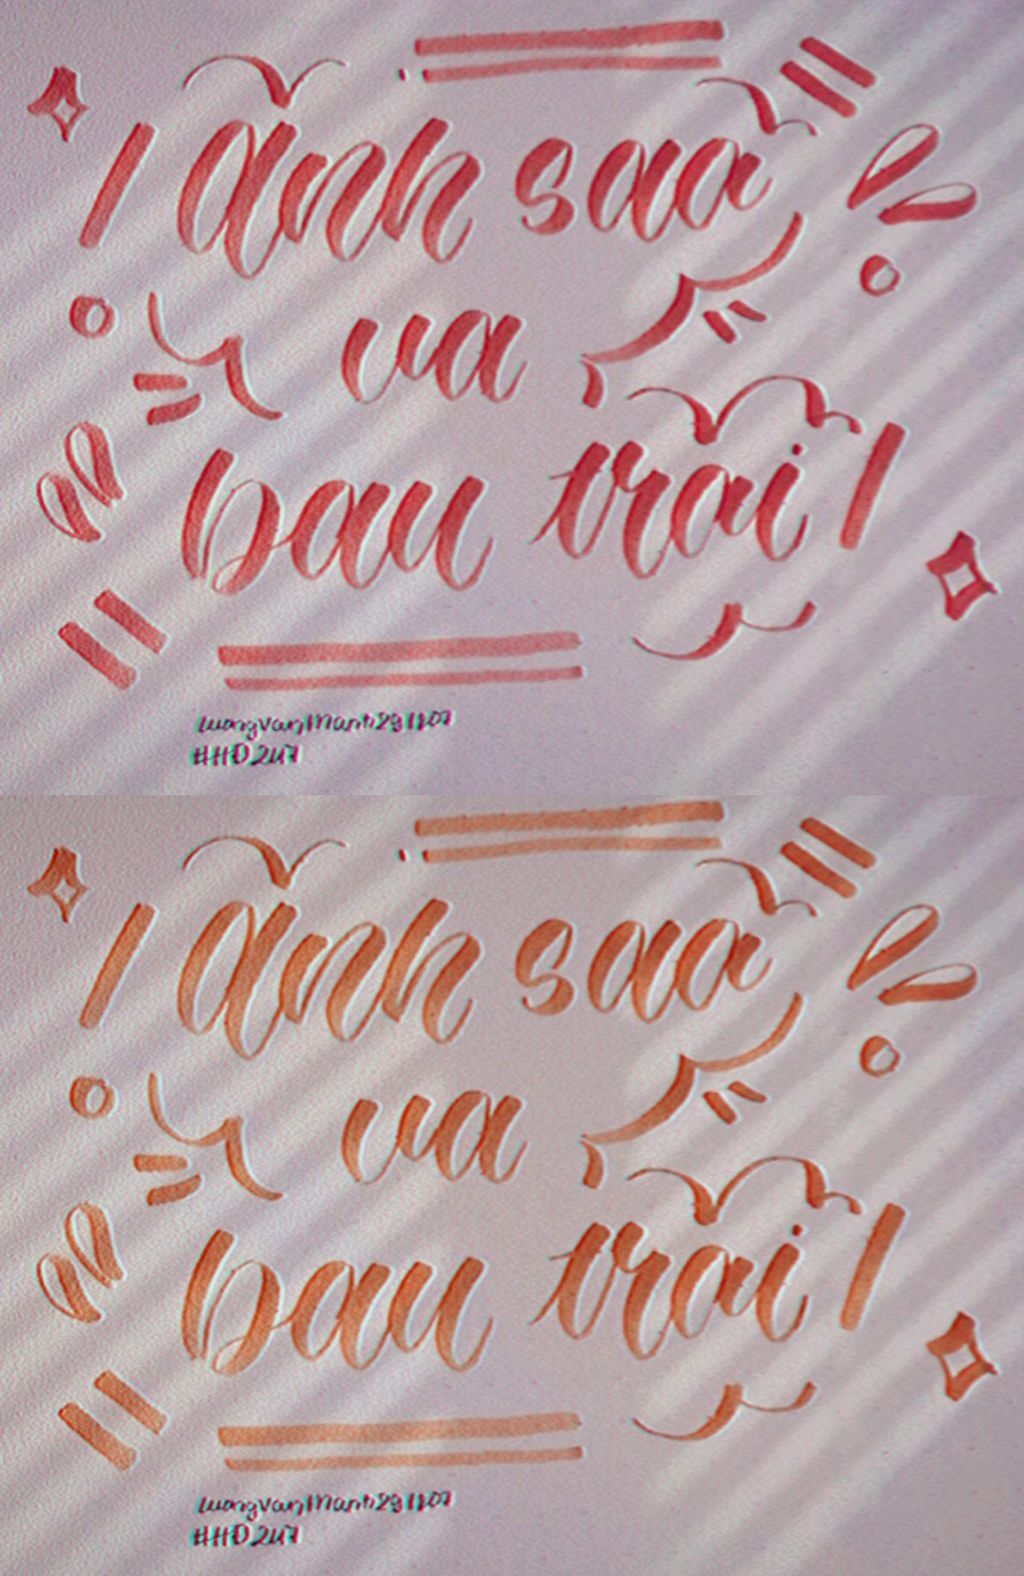 / anh saa
va
bau trai /
LuongVanManh291107
#HD247
/ anh saa
va
bau trai /
LuongVanManh291107
#HD247